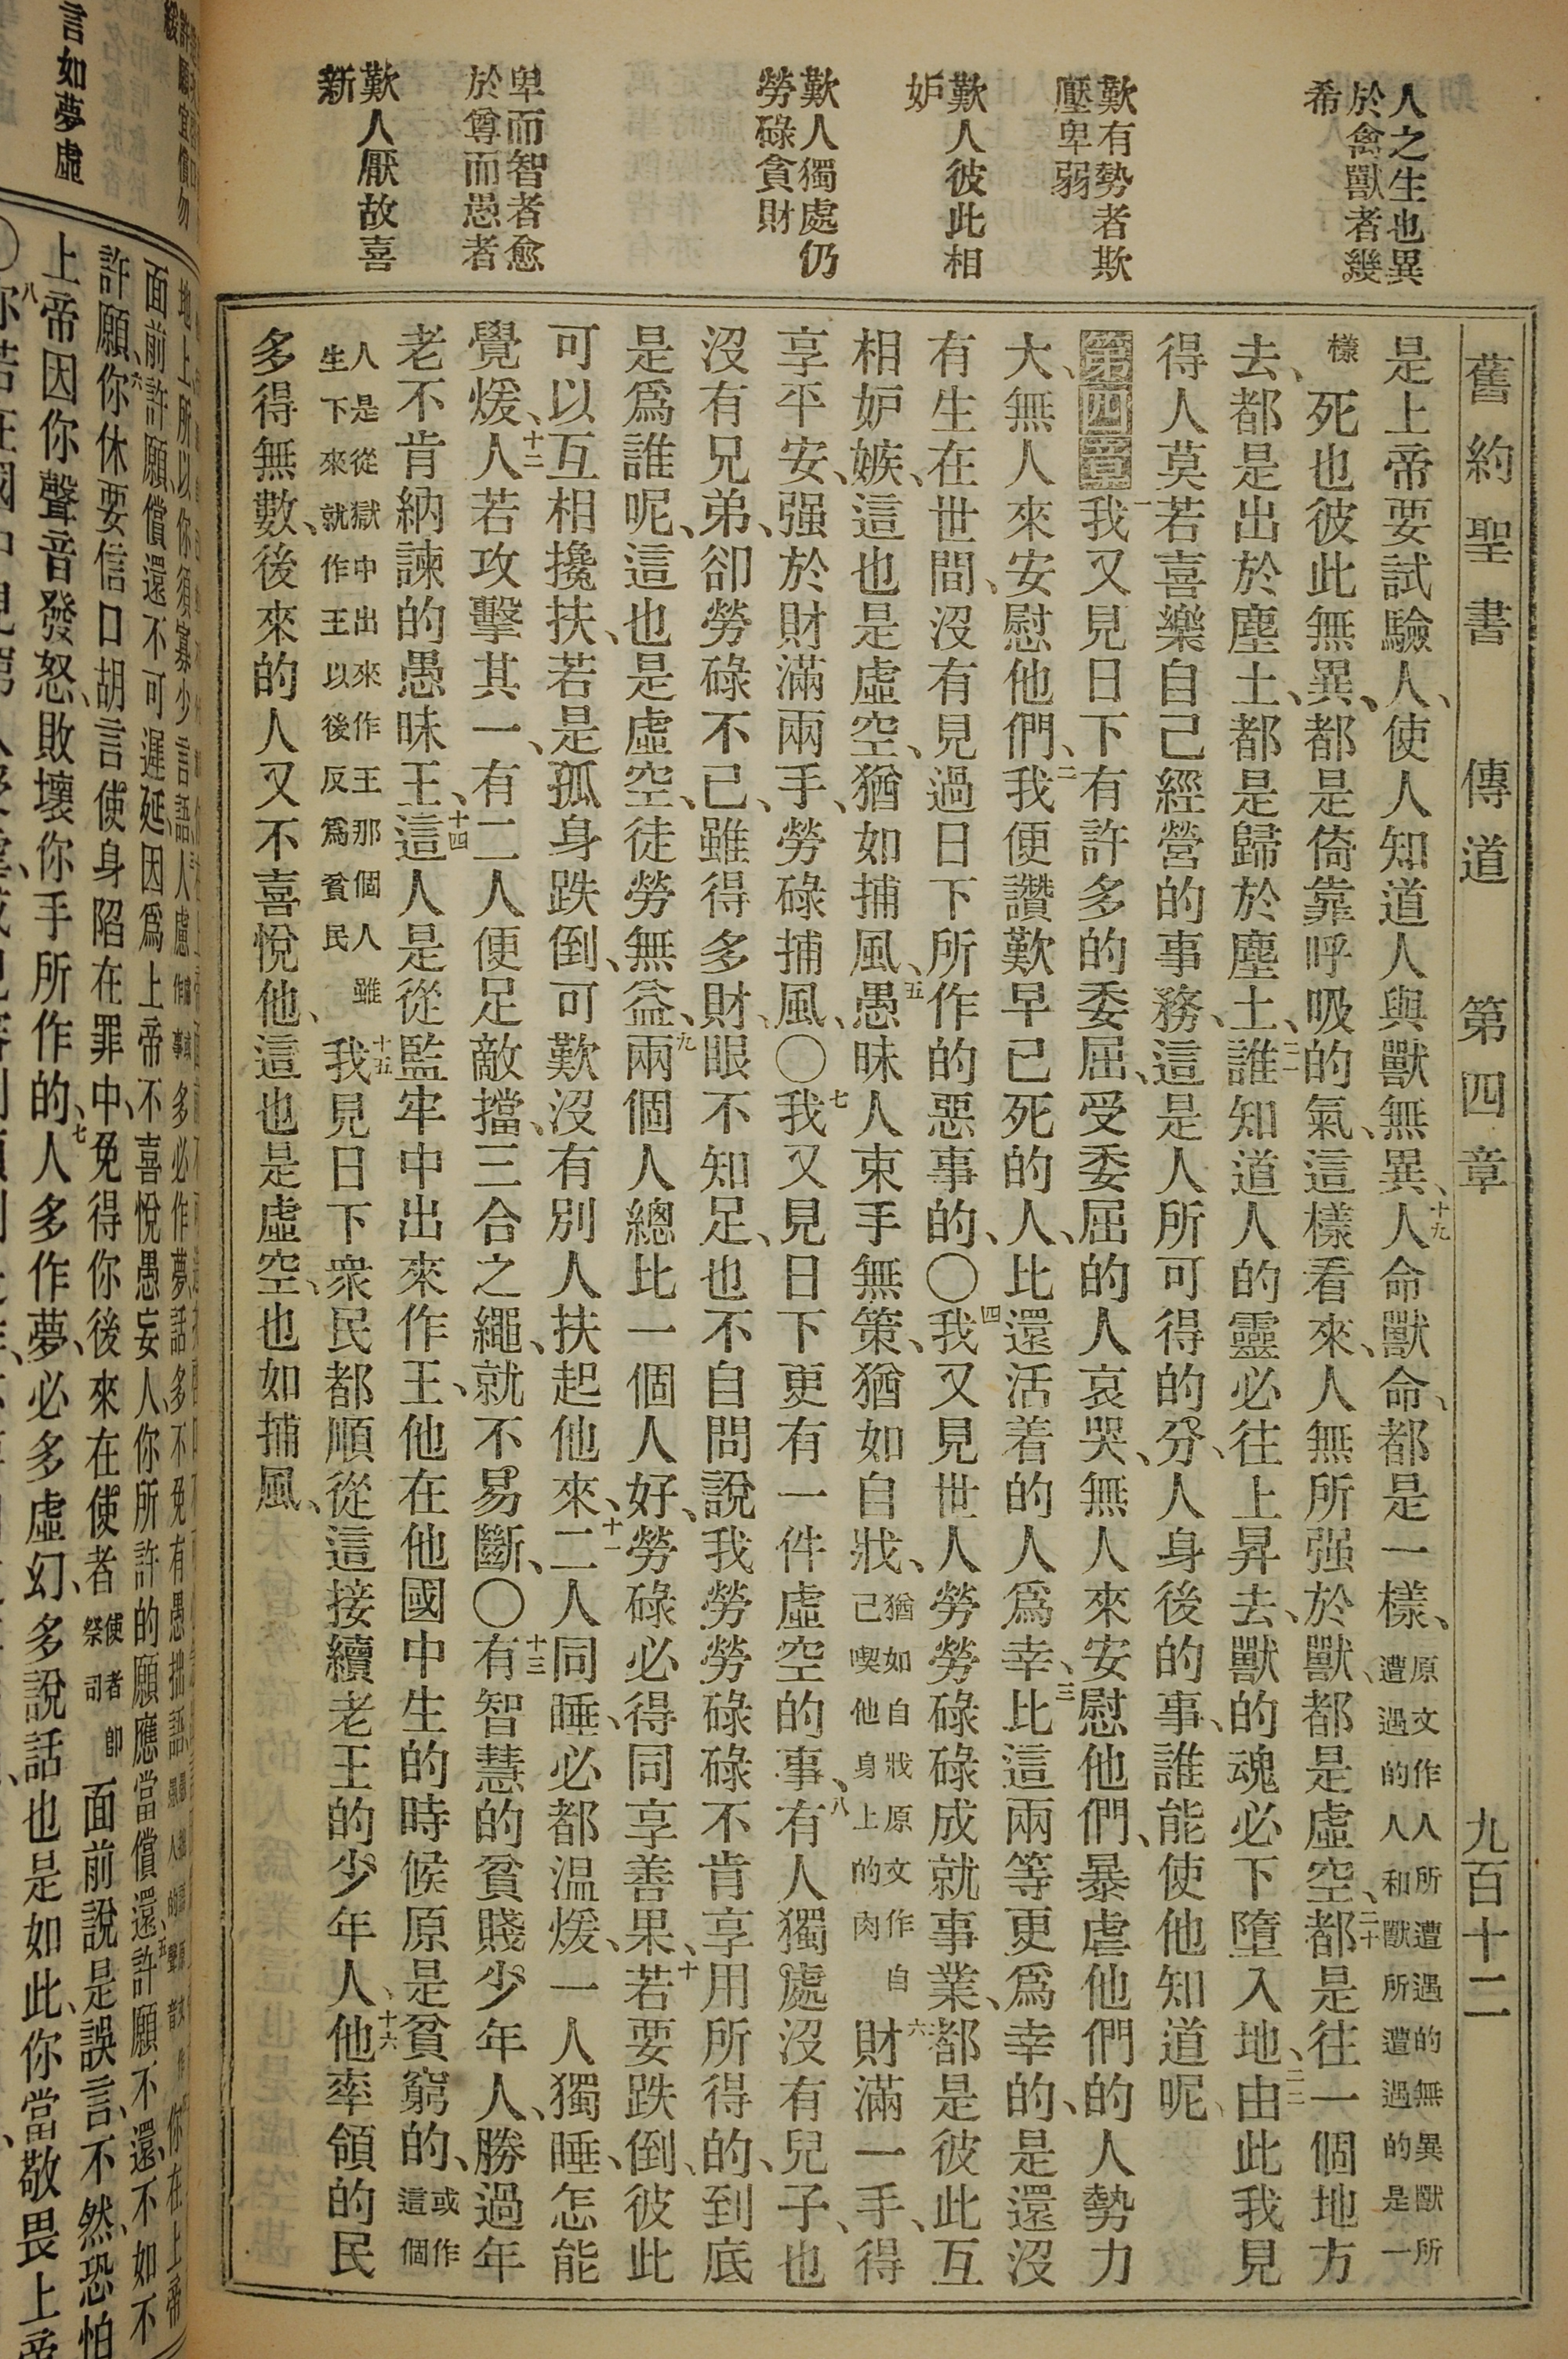 舊約聖書 傳道 第四章 九百十二
人之生也異
於禽獸者幾
希
歎有勢者欺
壓卑弱
歎人彼此相
妒
歎人獨處仍
勞碌貪財
卑而智者愈
於尊而愚者
歎人厭故喜
新
是上帝要試驗人、使人知道人與獸無異、十九人命獸命、都是一樣、原文作人所遭遇的無異獸所遭遇的人和獸所遭遇的是一
樣死也彼此無異、都是倚靠呼吸的氣、這樣看來、人無所强於獸、都是虛空、二十都是往一個地方
去、都是出於塵土、都是歸於塵土、二一誰知道人的靈必往上昇去、獸的魂必下墮入地、二二由此我見
得人莫若喜樂自己經營的事務、這是人所可得的分、人身後的事、誰能使他知道呢、
第四章一我又見日下有許多的委屈、受委屈的人哀哭、無人來安慰他們、暴虐他們的人勢力
大、無人來安慰他們、二我便讚歎早已死的人、比還活着的人爲幸、三比這兩等更爲幸的、是還沒
有生在世間、沒有見過日下所作的惡事的、〇四我又見世人勞勞碌碌成就事業、都是彼此互
相妒嫉、這也是虛空、猶如捕風、五愚昧人束手無策、猶如自戕、猶如自戕原文作自己喫他身上的肉六財滿一手、得
享平安、强於財滿兩手、勞碌捕風、〇七我又見日下更有一件虛空的事、八有人獨處沒有兒子、也
沒有兄弟、卻勞碌不已、雖得多財、眼不知足、也不自問說我勞勞碌碌不肯享用所得的、到底
是爲誰呢、這也是虛空、徒勞無益、九兩個人總比一個人好、勞碌必得同享善果、十若要跌倒、彼此
可以互相攙扶、若是孤身跌倒、可歎沒有別人扶起他來、十一二人同睡、必都溫煖、一人獨睡、怎能
覺煖、十二人若攻擊其一、有二人便足敵擋、三合之繩、就不易斷、〇十三有智慧的貧賤少年人、勝過年
老不肯納諫的愚昧王、十四這人是從監牢中出來作王、他在他國中生的時候原是貧窮的、或作這個
人是從獄中出來作王那個人雖生下來就作王以後反爲貧民十五我見日下衆民都順從這接續老王的少年人、十六他率領的民
多得無數、後來的人又不喜悅他、這也是虛空、也如捕風、
言如夢虛
許願、六你休要信口胡言使身陷在罪中、免得你後來在使者使者卽祭司面前說是誤言、不然、恐怕
上帝因你聲音發怒、敗壞你手所作的、七人多作夢、必多虛幻、多說話也是如此、你當敬畏上帝
面前許願、償還不可遲延、因爲上帝不喜悅愚妄人、你所許的願應當償還、五許願不還、不如不